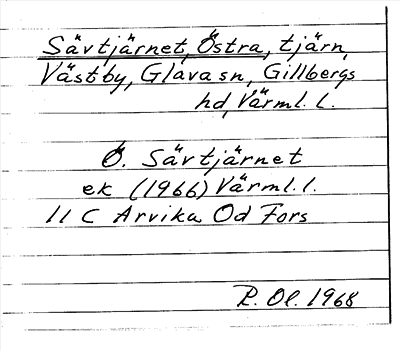 Sävtjärnet, Östra, tjärn,
Västby, Glava sn, Gillbergs
hd, Värml. l.
Ö. Sävtjärnet
ek (1966) Värml. l.
11 C Arvika Od Fors
P. Ol. 1968